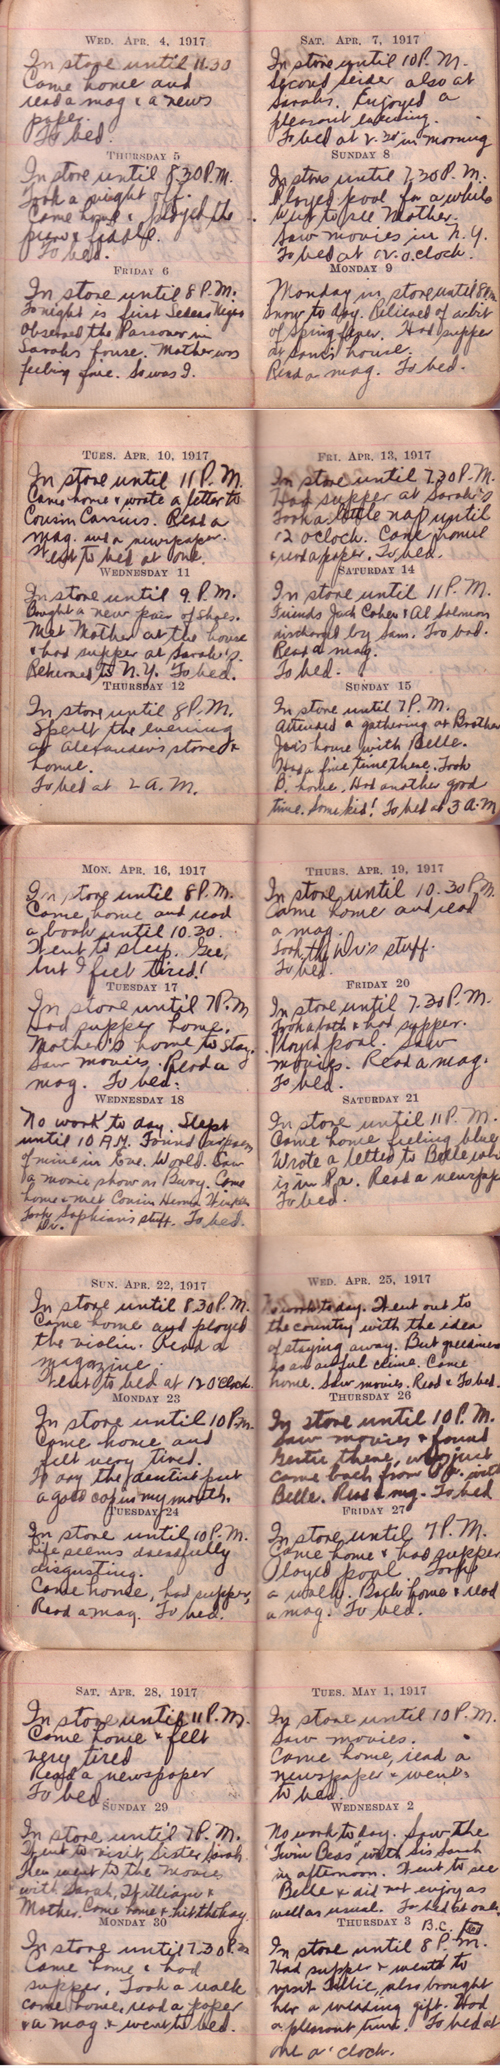 WED. APR. 4, 1917
In store until 11.30
Came home and
read a mag & a news
paper.
To bed.
THURSDAY 5
In store until 8.30 P.M.
Took a night off.
Come home & played the
piano & fiddle.
To bed.
FRIDAY 6
In store until 8 P.M.
To night is first Seder Night
Observed the Passover in
Sarah's house. Mother was
feeling fine. So was I.
SAT. APR. 7, 1917
In store until 10 P.M.
Second seider also at
Sarahs. Enjoyed a
pleasant evening.
To bed at 2.30 in morning
SUNDAY 8
In store until 7.30 P.M.
Played pool for a while
Went to see Mother.
Saw movies in N.Y.
To bed at 2 o'clock.
MONDAY 9
Monday in store until 8 P.M.
Snow to day. Relieved of a bit
of Spring fever. Had supper
at Sam's house.
Read a mag. To bed.
TUES. APR. 10, 1917
In store until 11 P.M.
Came home & wrote a letter to
Cousin Cassius. Read a
mag. and a newspaper.
Went to bed at one.
WEDNESDAY 11
In store until 9 P.M.
Bought a new pair of shoes.
Met Mother at the house
& had supper at Sarah's.
Returned to N.Y. To bed.
THURSDAY 12
In store until 8 P.M.
Spent the evening
at Alexander's store &
home.
To bed at 2 A.M.
FRI. APR. 13, 1917
In store until 7.30 P.M.
Had supper at Sarah's
Took a little nap until
12 o'clock. Came home
& read a paper. To bed.
SATURDAY 14
In store until 11 P.M.
Friends Jack Cohen & Al Salmon
discharged by Sam. Too bad.
Read a mag.
To bed.
SUNDAY 15
In store until 7 P.M.
Attended a gathering at Brother
Joe's house with Belle.
Had a fine time there. Took
B. home. Had another good
time. Some kid! To bed at 3 A.M
MON. APR. 16, 1917
In store until 8 P.M.
Come home and read
a book until 10.30.
Went to sleep. Gee,
but I feel tired!
TUESDAY 17
In store until 7 P.M
Had supper home.
Mother's home to stay.
Saw movies. Read a
mag. To bed.
WEDNESDAY 18
No work to day. Slept
until 10 A.M. Found a poem
of mine in Eve. World. Saw
a movie show in Bway. Come
home & met Cousin Herman
Took Sophian's stuff. To bed.
Dr.
THURS. APR. 19, 1917
In store until 10.30 P.M.
Came home and read
a mag.
Took the Dr's stuff.
To bed.
FRIDAY 20
In store until 7.30 P.M.
Took a bath & had supper.
Played pool. Saw
movies. Read a mag.
To bed.
SATURDAY 21
In store until 11 P.M.
Came home feeling blue
Wrote a letter to Belle who
is in Pa. Read a newspape
To bed.
SUN. APR. 22, 1917
In store until 8.30 P.M.
Came home and played
the violin. Read a
magazine.
Went to bed at 12 o'clock.
MONDAY 23
In store until 10 P.M.
Come home and
felt very tired.
To day the dentist put
a gold cap in my mouth.
TUESDAY 24
In store until 10 P.M.
Life seems dreadfully
disgusting.
Come home, had supper,
Read a mag. To bed.
WED. APR. 25, 1917
No work to day. Went out to
the country with the idea
of staying away. But greediness
is an awful crime. Came
home. Saw movies. Read & To bed.
THURSDAY 26
In store until 10 P.M.
Saw movies & found
Gertie there, who just
came back from Pa. with
Belle. Read a mag. To bed
FRIDAY 27
In store until 7 P.M.
Came home & had supper
Played pool. Took
a walk. Back home & read
a mag. To bed.
SAT. APR. 28, 1917
In store until 11 P.M.
Come home & felt
very tired
Read a newspaper
To bed.
SUNDAY 29
In store until 7 P.M.
Went to visit Sister Sarah.
Then went to the movies
with Sarah, William &
Mother. Come home & hit the hay.
MONDAY 30
In store until 7.30 P.M
Came home & had
supper. Took a walk
come home, read a paper
& a mag. & went to bed.
TUES. MAY 1, 1917
In store until 10 P.M.
Saw movies.
Come home, read a
newspaper & went
to bed.
WEDNESDAY 2
No work to day. Saw the
"Twin Beds" with Sis Sarah
in afternoon. Went to see
Belle & did not enjoy as
well as usual. To bed at one.
THURSDAY 3 B.C.
In store until 8 P.M.
Had supper & went to
visit Tillie, also brought
her a wedding gift. Had
a pleasant time. To bed at
one o'clock.